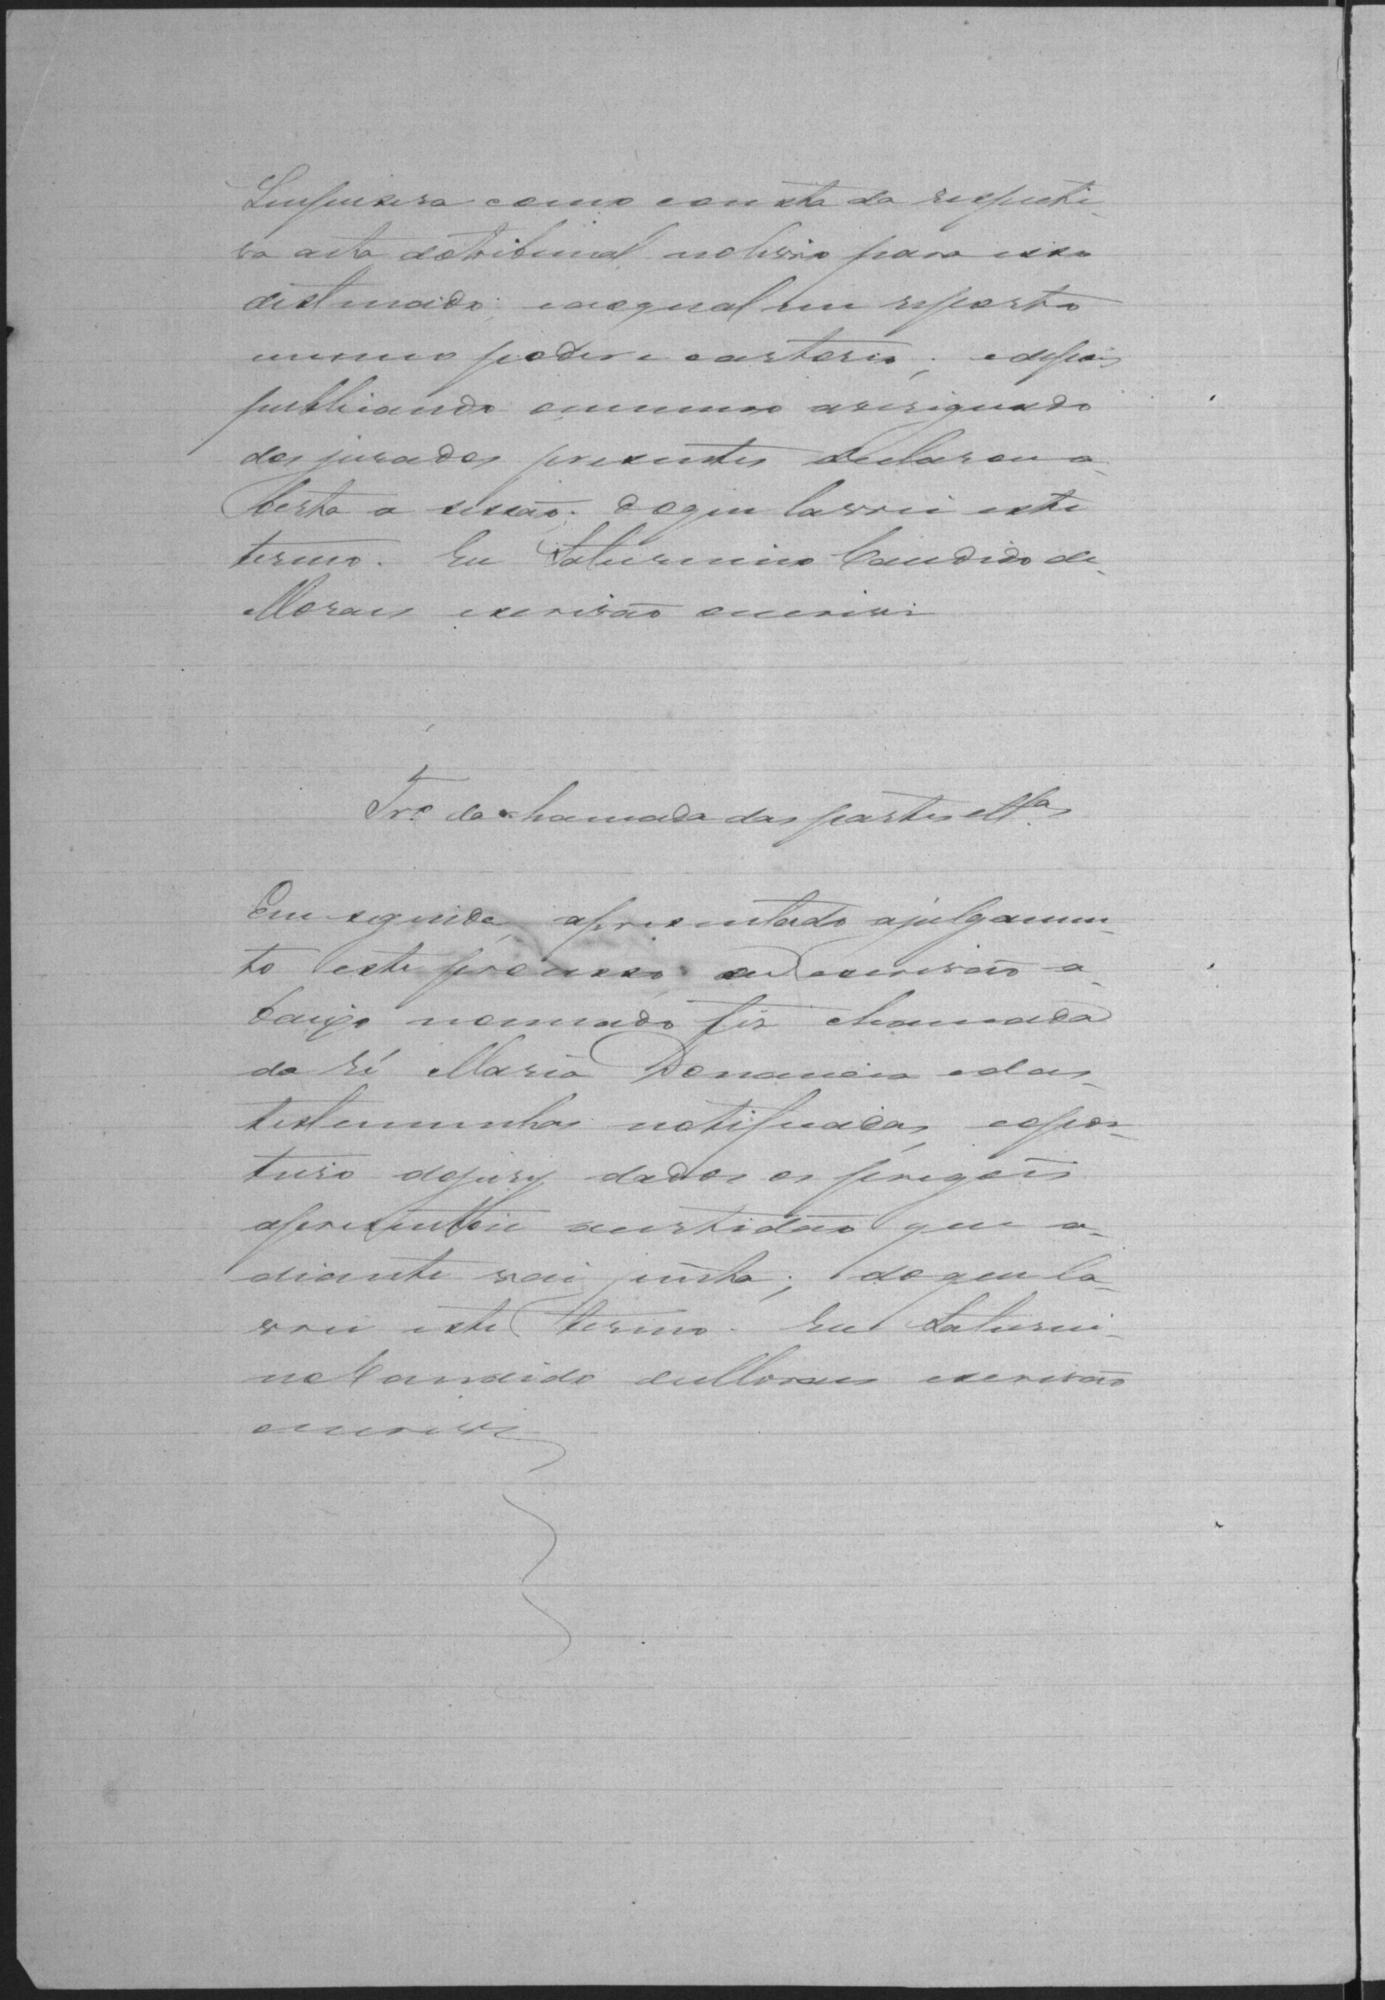 como consta da respecti-
va acta do tribunal no livro para esse
destinado; ao qual me reporto
em meo poder e cartorio; e depois
publicando o numero assignado
dos jurados presentes declarou a-
berta a sessão. Do que lavrei este
termo. Eu Saturnino Candido de
Moraes escrivão o escrivi
Tr.º da chamada das partes e tt.as
Em seguida apresentado a julgamen-
to este processo eu escrivão a-
baixo nomeado fiz chamada
da ré Maria Venancia e das
testemunhas notificadas, e o por-
teiro do jury dados os pregões
apresentou a certidão que a-
diante vai junta; do que la-
vrei este termo. Eu Saturni-
no Candido de Moraes escrivão
o escrivi